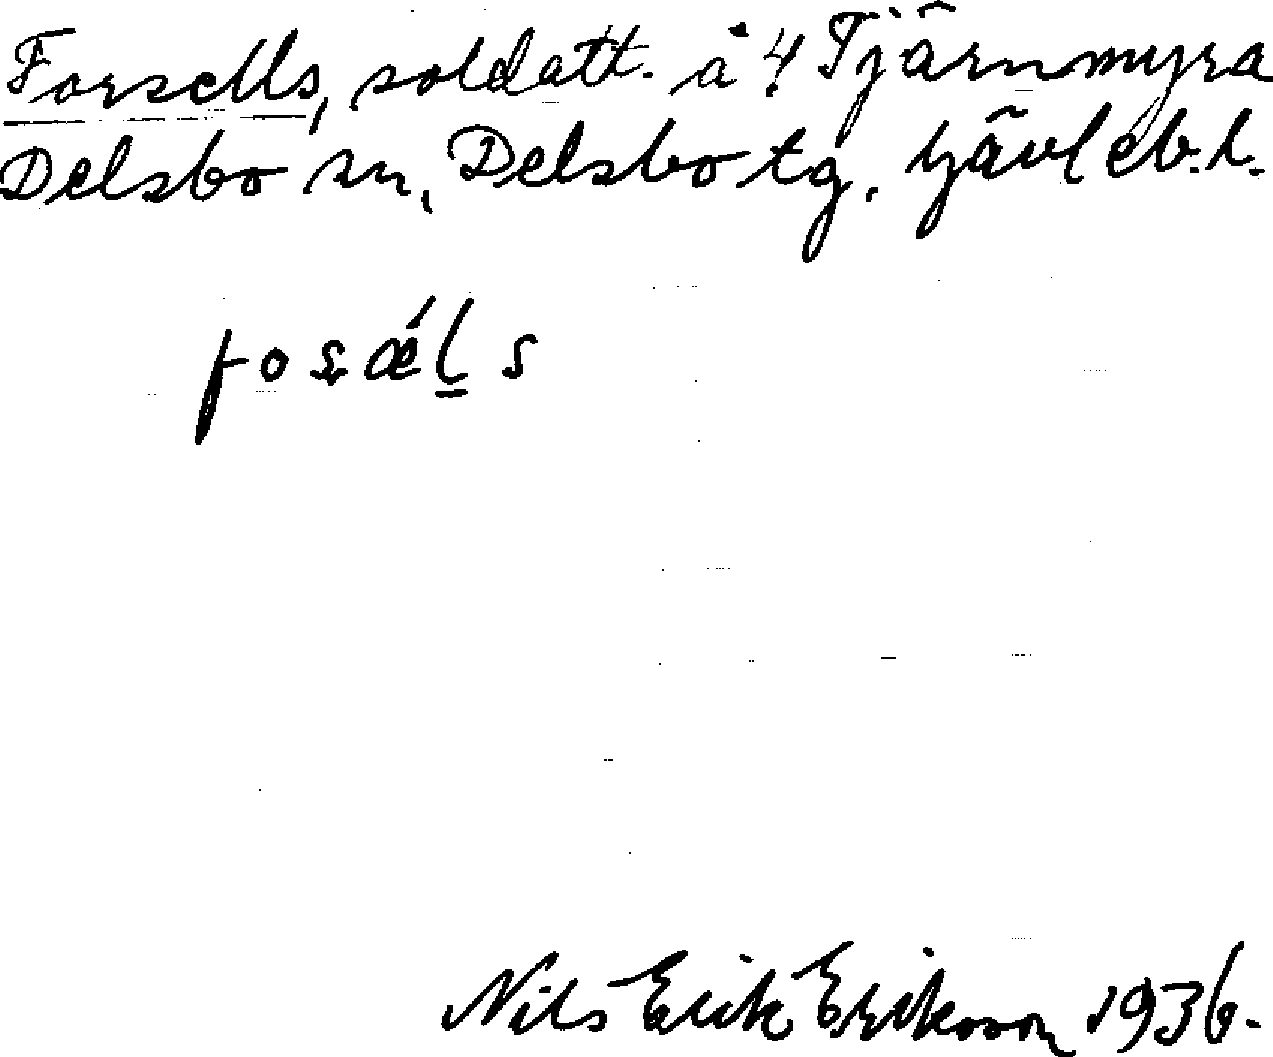 Forsells, soldatt. å 4 Tjärnmyra
Delsbo sn, Delsbo tg. Gävleb. l.
fosǽl̲s
Nils Erik Eriksson 1936.